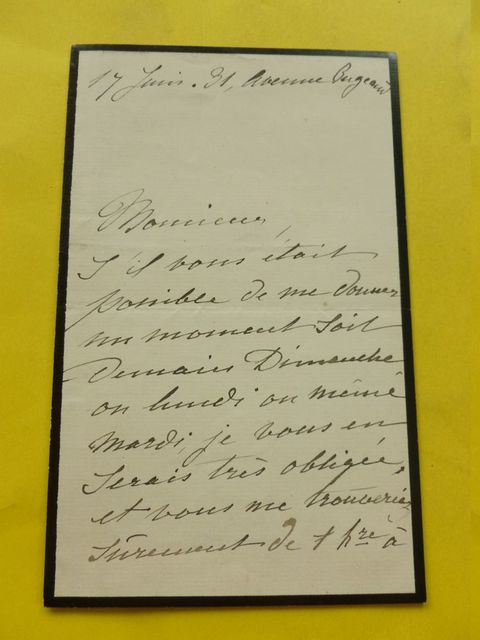 17 Juin. 31, Avenue Bugeaud
Monsieur,
S'il vous était
possible de me donner
un moment soit
demain Dimanche
ou lundi ou même
mardi, je vous en
serais très obligée,
et vous me trouveriez
sûrement de 1 hre à